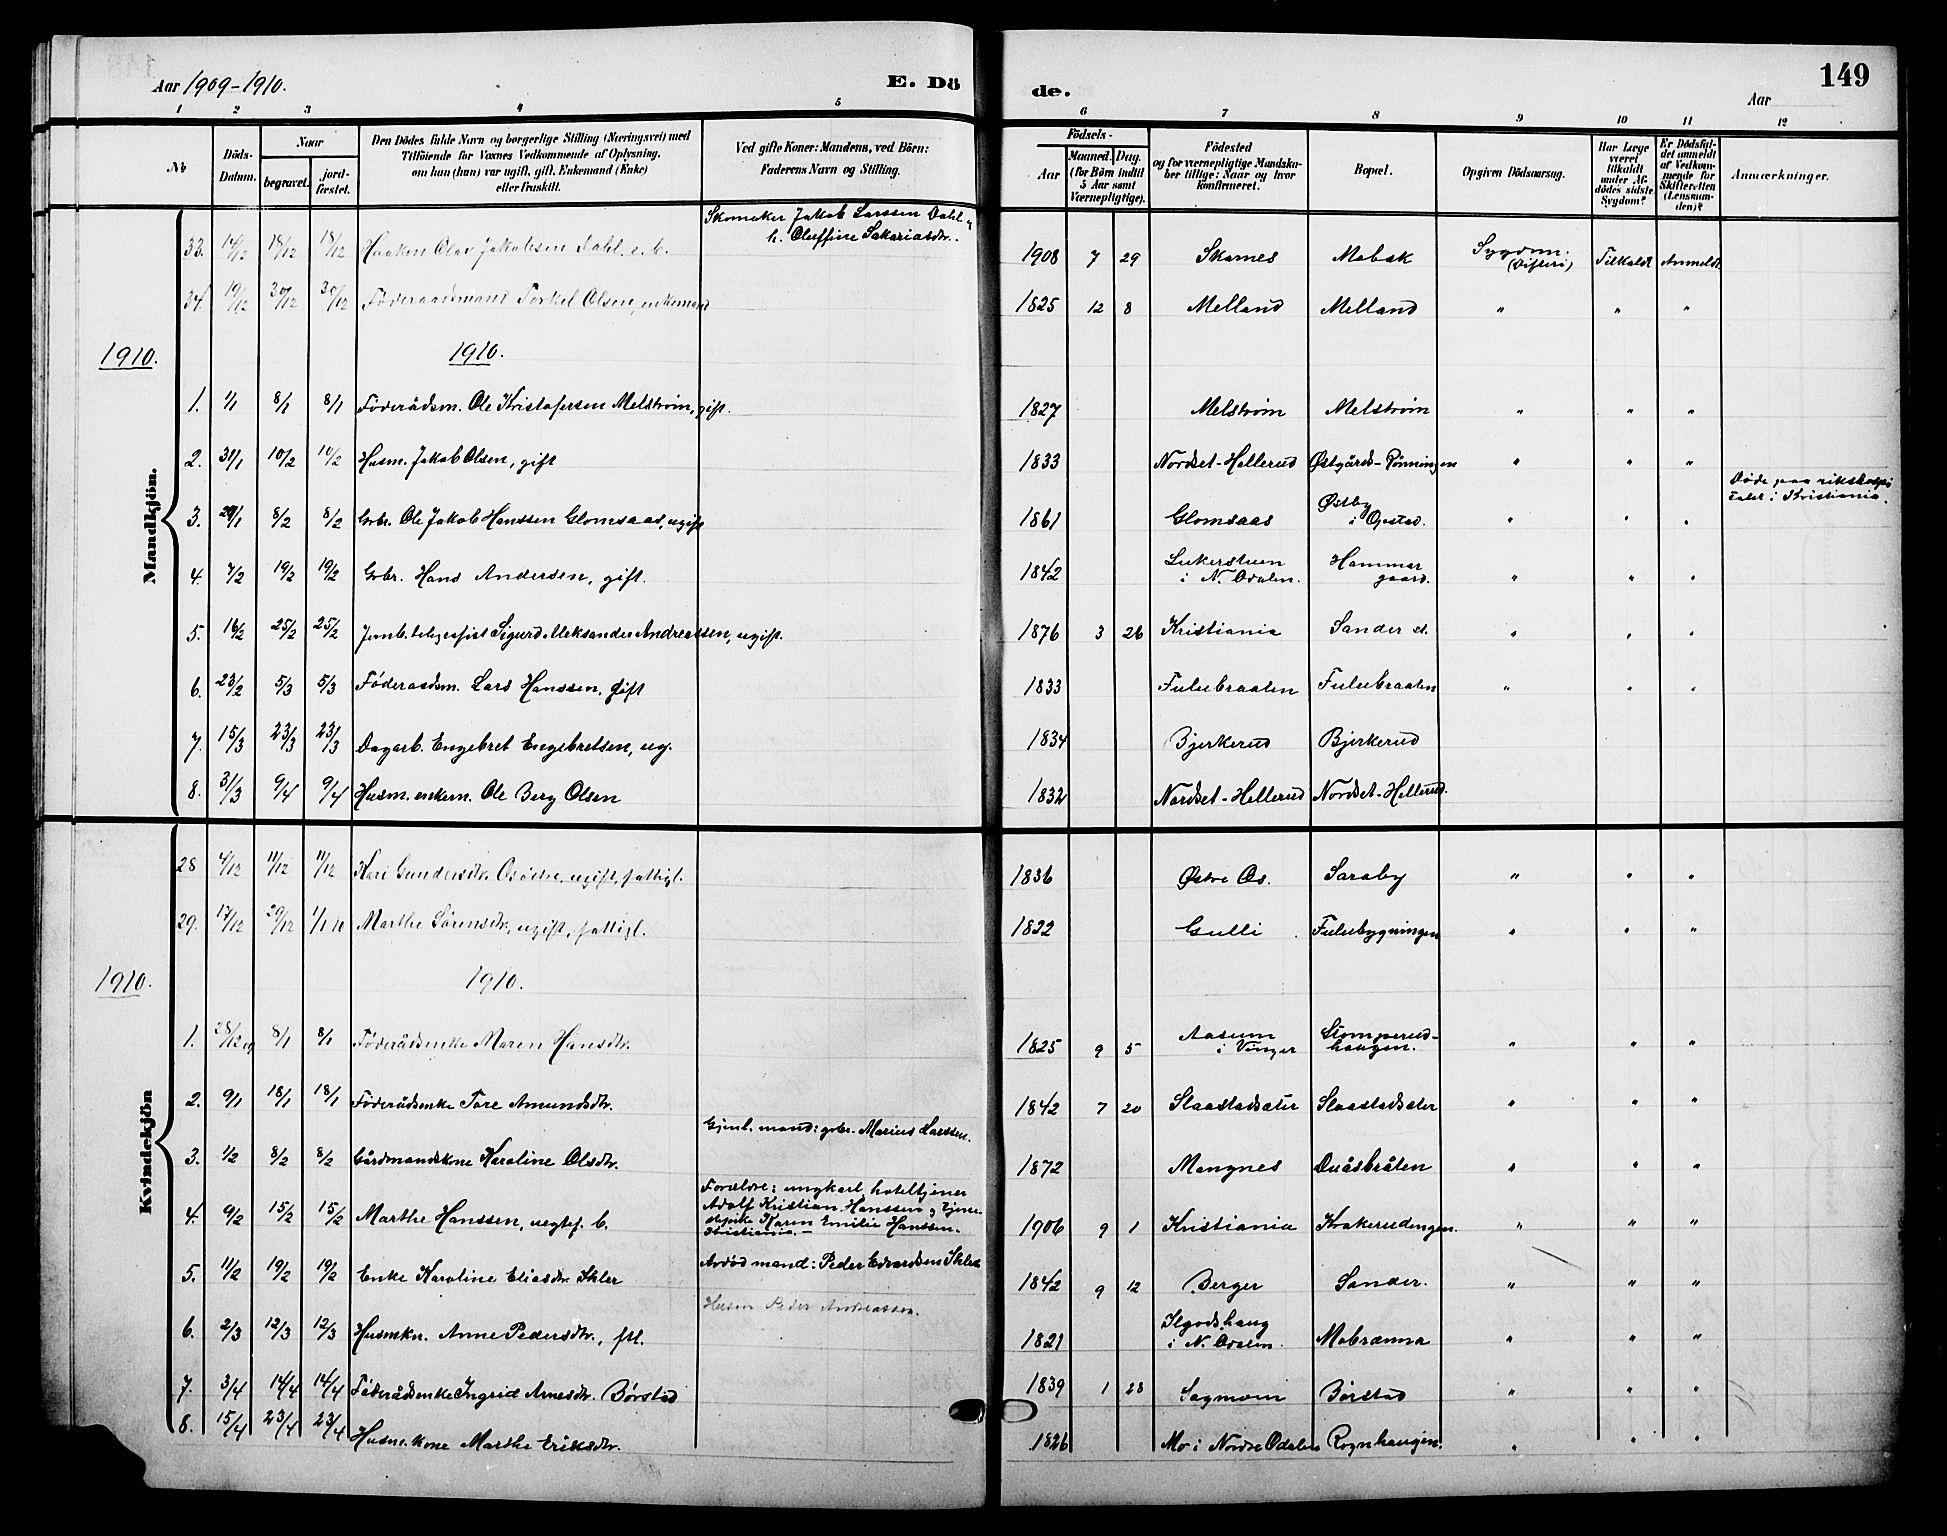 Aar 1909-1910.
E. Dö
de.
149
Aar
1 2 3 4 5 6 7 8 9 10 11 12
№
Döds-Datum.
Naar
begravet.
jord-fæstet.
Den Dödes fulde Navn og borgerlige Stilling (Næringsvei) med
Tilföiende for Voxnes Vedkommende af Oplysning,
om han (hun) var ugift, gift, Enkemand (Enke)
eller fraskilt.
Ved gifte Koner: Mandens, ved Börn:
Faderens Navn og Stilling.
Födsels-
Aar
Maaned. Dag.
(for Börn indtil
5 Aar samt
Værnepligtige).
Födested
og for værnepligtige Mandska-
ber tillige: Naar og hvor
konfirmeret.
Bopæl.
Opgiven Dödsaarsag.
Har Læge
været
tilkaldt
under Af-
dödes sidste
Sygdom?
Er Dödsfal-
det anmeldt
af Vedkom-
mende for
Skifteretten
(Lensman-
den)?
Anmærkninger.
Mandkjön.
Skomaker Jakob Larssen Dahl og
h. Oluffine Sakariasdtr.
33. 14/12 18/12 18/12 Haakon Olav Jakobsen Dahl, e. b. 1908 7 29 Skarnes Mobæk Sygdom. (Difteri) Tilkaldt Anmeldt
34. 19/12 30/12 30/12 Föderaadsmand Torkel Olsen, enkemand 1825 12 8 Melland Melland " " "
1910. 1910.
1. 1/1 8/1 8/1 Föderådsm. Ole Kristofersen Melström, gift. 1827 Melström Melström " " "
2. 31/1 10/2 10/2 Husm. Jakob Olsen, gift 1833 Nordset-Hellerud Østgårds-Rönningen " " "
3. 29/1 8/2 8/2 Gbr. Ole Jakob Hanssen Glomsaas, ugift 1861 Glomsaas Østby i Opstad. " " " Döde paa rikshospi
talet i Kristiania.
4. 7/2 19/2 19/2 Gbr. Hans Andersen, gift. 1842 i N. Odalen. Hammer gaard. " " "
5. 16/2 25/2 25/2 Jernb. telegrafist Sigurd Aleksander Andreassen, ugift. 1876 3 26 Kristiania Sander st. " " "
6. 23/2 5/3 5/3 Föderaadsm. Lars Hanssen, gift 1833 Fulubraaten Fulubraaten " " "
7. 15/3 23/3 23/3 Dagarb. Engebret Engebretsen, ug. 1834 Bjerkerud Bjerkerud
8. 31/3 9/4 9/4 Husm. enkem. Ole Berg Olsen 1832 Nordset-Hellerud Nordset-Hellerud.
Kvindekjön
28 4/12 11/12 11/12 Kari Gundersdtr. Osöstre, ugift, fattigl. 1836 Østre Os. Saraby " " "
29. 17/12 29/12 1/1 10 Marthe Sörensdtr., ugift, fattigl. 1822 Gulli Fulubygningen " " "
1910. 1910.
1. 28/12 09 8/1 8/1 Föderådsenke Maren Hansdtr. 1825 9 5 Aasum i Vinger Stomperud-haugen. " " "
2. 9/1 18/1 18/1 Föderådsenke Tore Amundsdtr. 1842 7 20 Slaastadsæter Slaastadsæter " " "
Gjenl. mand: gbr. Marius Larssen.
3. 1/2 8/2 8/2 Gårdmandskone Karoline Olsdtr. 1872 Mangnes Duåsbråten " " "
Forældre: ungkarl, hoteltjener
Adolf Kristian Hanssen og tjene-
stepike Karen Emilie Hanssen.
Kristiania.-
4. 9/2 15/2 15/2 Marthe Hanssen, uegtef. b. 1906 9 1 Kristiania Krakerudengen. " " "
Avdød mand: Peder Edvardsen Skler
5. 11/2 19/2 19/2 Enke Karoline Eliasdtr. Skler 1842 9 12 Berger Sander. " " "
Husm Peder Andreassen.
6. 2/3 12/3 12/3 Husmkn. Anne Pedersdtr., ftl. 1821 i N. Odalen. Mobrænna " " "
7. 3/4 14/4 14/4 Föderådsenke Ingrid Arnesdtr. Börstad 1839 1 28 Sagmoin Börstad " " "
8. 15/4 23/4 23/4 Husm. kone Marthe Eriksdtr. 1826 Mo i Nordre Odalen Rognhaugen. " " "